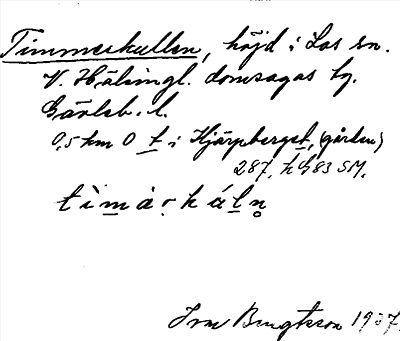 Timmerkullen, höjd i Los sn.
V. Hälsingl. domsagas tg.
Gävleb. l.
0,5 km O t i Hjärpberget, (gården)
287. h G83 SM.
tìmàr kálṇ
Bengtsson 1937.